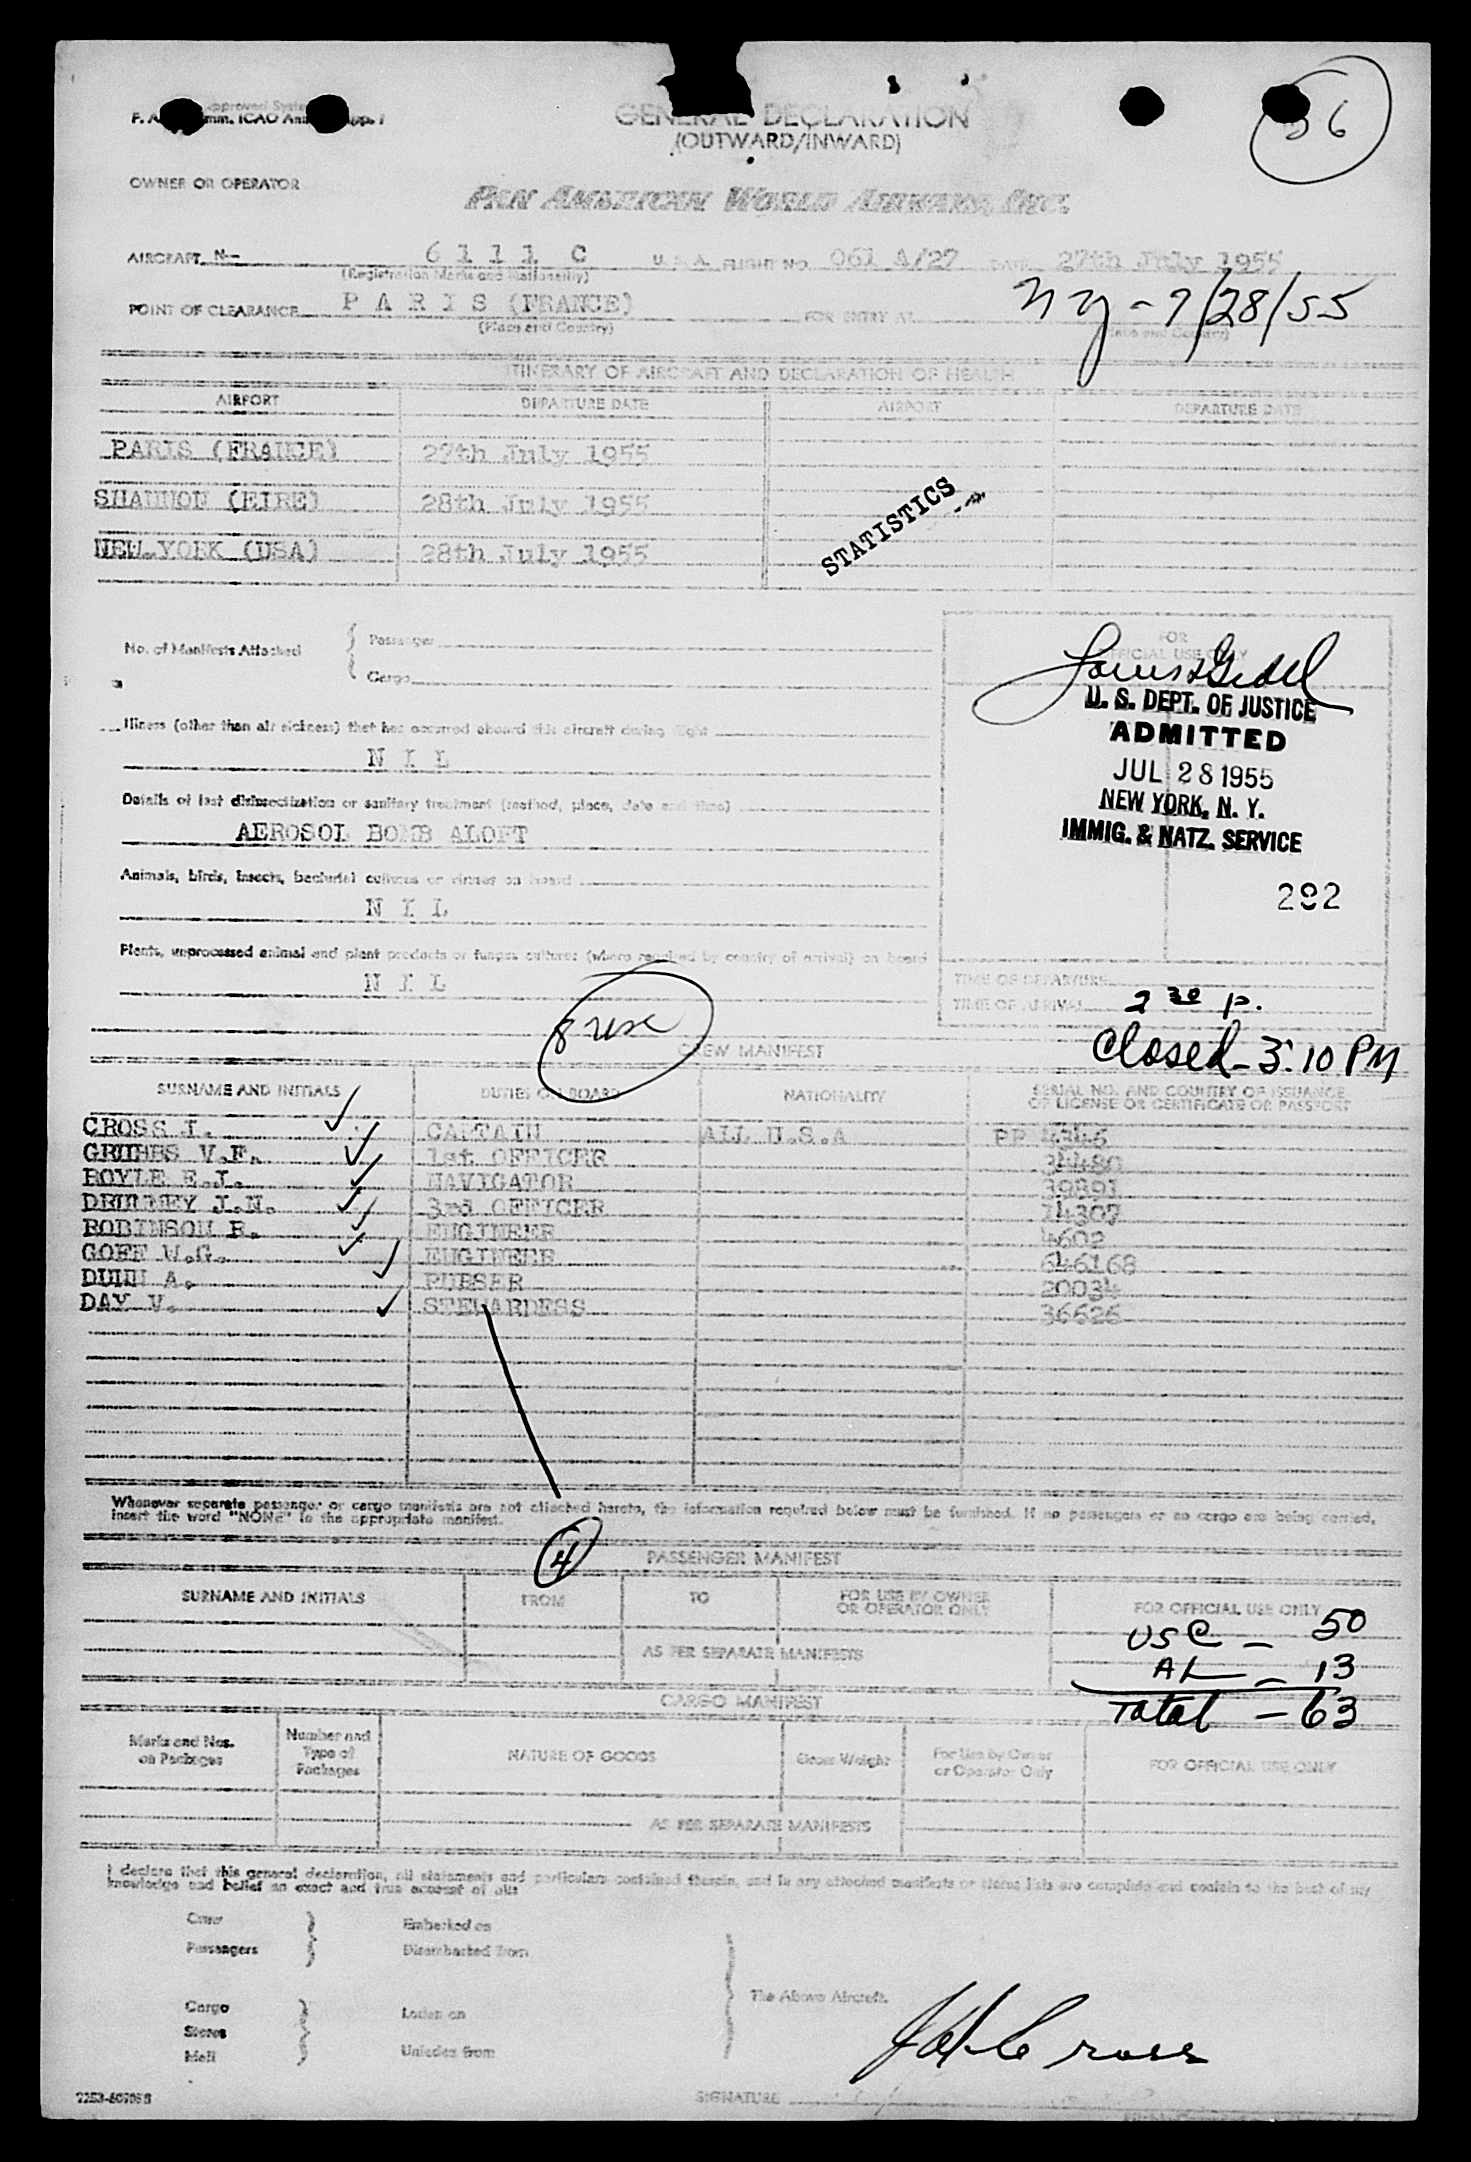 GENERAL DECLARATION
(OUTWARD/INWARD)
36
OWNER OR OPERATOR
PAN AMERICAN WORLD AIRWAYS, INC.
AIRCRAFT N- 6 1 1 1 C U. S. A. FLIGHT NO. 061 A/27 DATE 27th July 1955
(Registration Marks and Nationality)
POINT OF CLEARANCE P A R I S (FRANCE) FOR ENTRY AT NY - 7/28/55
(Place and Country) (Place and Country)
ITINERARY OF AIRCRAFT AND DECLARATION OF HEALTH
AIRPORT DEPARTURE DATE AIRPORT DEPARTURE DATE
PARIS (FRANCE) 27th July 1955
SHANNON (EIRE) 28th July 1955
NEW YORK (USA) 28th July 1955
STATISTICS
No. of Manifests Attached { Passenger
Cargo
FOR
OFFICIAL USE ONLY
U. S. DEPT. OF JUSTICE
ADMITTED
JUL 28 1955
NEW YORK, N. Y.
IMMIG. & NATZ. SERVICE
292
Illness (other than air sickness) that has occurred aboard this aircraft during flight
N I L
Details of last disinsectization or sanitary treatment (method, place, date and time)
AEROSOL BOMB ALOFT
Animals, birds, insects, bacterial cultures or viruses on board
N I L
Plants, unprocessed animal and plant products or fungus cultures (where required by country of arrival) on board
N I L
TIME OF DEPARTURE
TIME OF ARRIVAL 2 30 p.
Closed - 3:10 PM
CREW MANIFEST
SURNAME AND INITIALS DUTIES ON BOARD NATIONALITY SERIAL NO. AND COUNTRY OF ISSUANCE
OF LICENSE OR CERTIFICATE OR PASSPORT
CROSS I. CAPTAIN ALL U.S.A PP 4346
GRUBBS V.F. 1st OFFICER 34480
BOYLE E.J. NAVIGATOR 39891
J.N. 3rd OFFICER 14307
ROBINSON R. ENGINEER 4602
GOFF W.G. ENGINEER 646168
DUNN A. PURSER 20034
DAY V. STEWARDESS 36626
Whenever separate passenger or cargo manifests are not attached hereto, the information required below must be furnished. If no passengers or no cargo are being carried,
insert the word "NONE" in the appropriate manifest.
4
PASSENGER MANIFEST
SURNAME AND INITIALS FROM TO FOR USE BY OWNER
OR OPERATOR ONLY FOR OFFICIAL USE ONLY
USC - 50
AS PER SEPARATE MANIFESTS
AL - 13
Total - 63
CARGO MANIFEST
Marks and Nos.
on Packages Number and
Type of
Packages NATURE OF GOODS Gross Weight For Use by Owner
or Operator Only FOR OFFICIAL USE ONLY
AS PER SEPARATE MANIFESTS
I declare that this general declaration, all statements and particulars contained therein, and in any attached manifests or stores lists are complete and contain to the best of my
knowledge and belief an exact and true account of all:
Crew
Passengers } Embarked on
Disembarked from
The Above Aircraft.
Cargo
Stores
Mail } Laden on
Unladen from
SIGNATURE